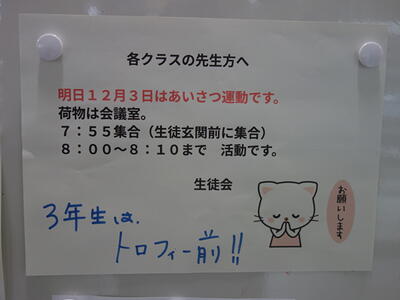 各クラスの先生方へ
明日12月3日はあいさつ運動です。
荷物は会議室。
7:55集合（生徒玄関前に集合）
8:00〜8:10まで　活動です。
生徒会
お願いします
3年生は、
トロフィー前!!